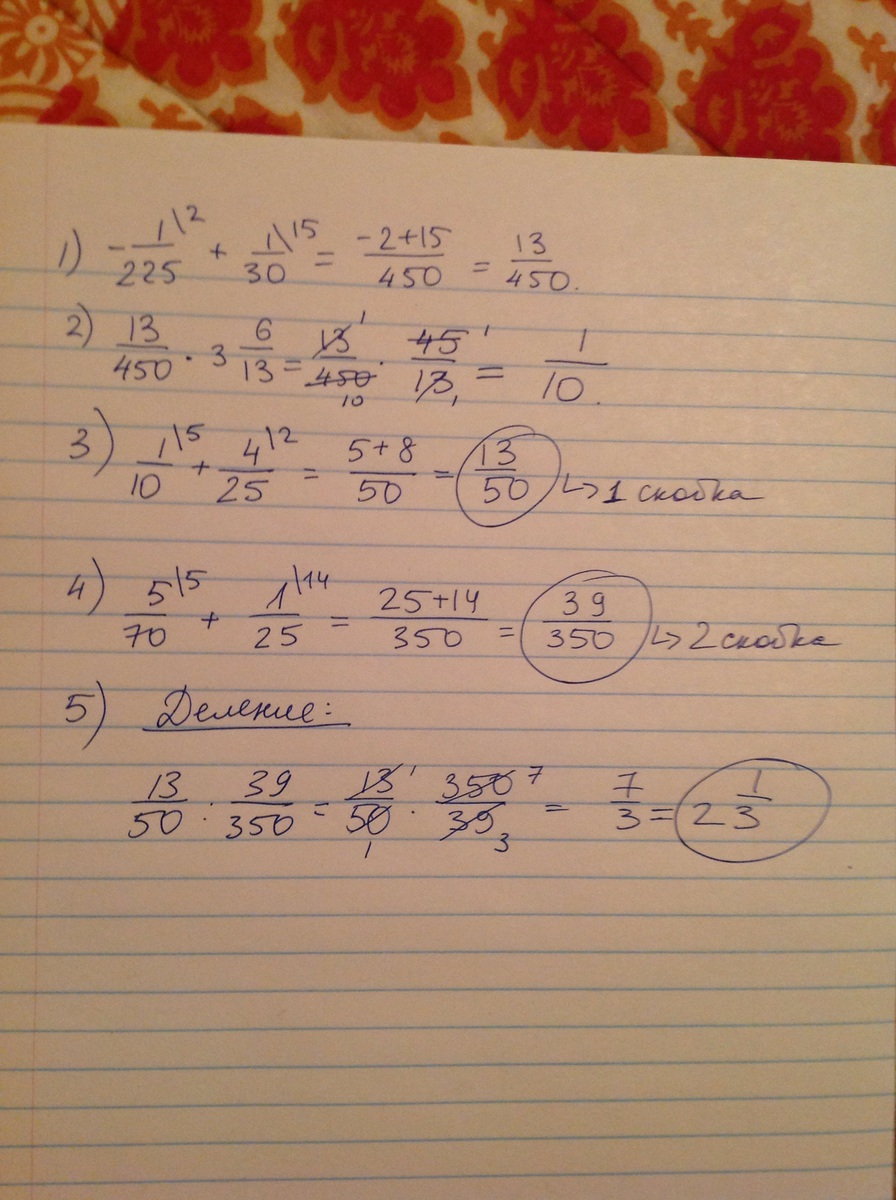 1) -1\2/225 + 1\15/30 = -2+15/450 = 13/450.
2) 13/450 · 3 6/13 = 13 1/450 10 · 45 1/13 1 = 1/10.
3) 1\5/10 + 4\2/25 = 5+8/50 = 13/50 ↳ 1 скобка
4) 5\5/70 + 1\14/25 = 25+14/350 = 39/350 ↳ 2 скобка
5) Деление:
13/50 : 39/350 = 13 1/50 1 · 350 7/39 3 = 7/3 = 2 1/3